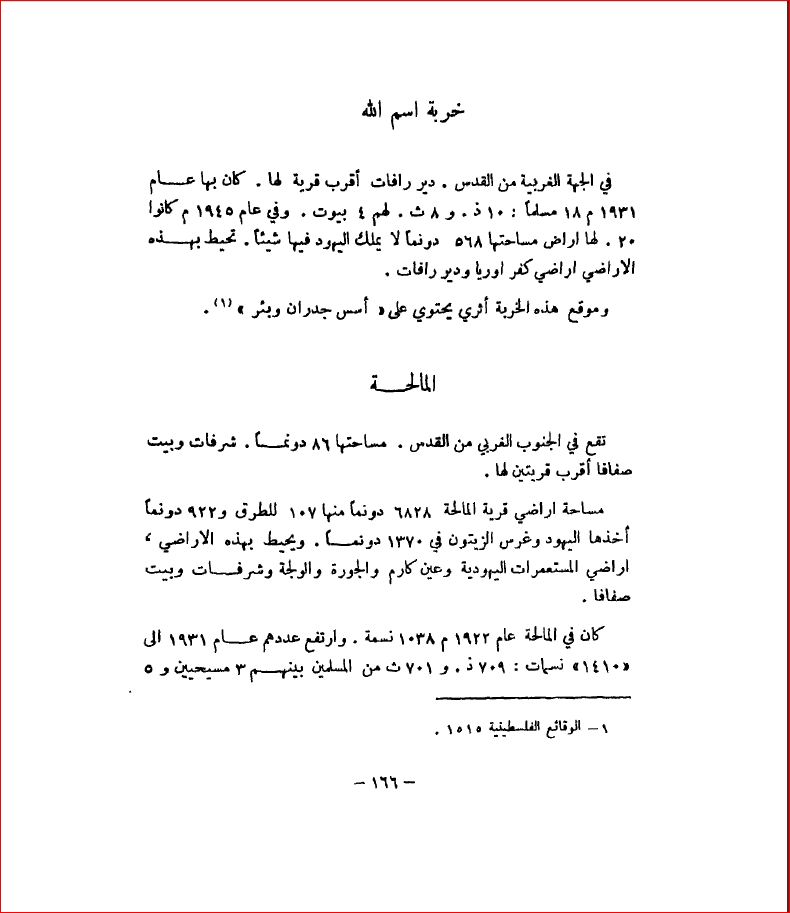 خربة اسم الله
في الجهة الغربية من القدس . دير رافات أقرب قرية لها . كان بها عـــام
١٩٣١ م ١٨ مسلماً : ١٠ ذ . و ٨ ث . لهم ٤ بيوت . وفي عام ١٩٤٥ م كانوا
٢٠ . لها اراض مساحتها ٥٦٨ دونماً لا يملك اليهود فيها شيئاً . تحيط بهـــذه
الاراضي اراضي كفر اوريا ودير رافات .
وموقع هذه الخربة أثري يحتوي على « أسس جدران وبئر » (١) .
المالحـــة
تقع في الجنوب الغربي من القدس . مساحتها ٨٦ دونمـــاً . شرفات وبيت
صفافا أقرب قريتين لها .
مساحة اراضي قرية المالحة ٦٨٢٨ دونماً منها ١٠٧ للطرق و٩٢٢ دونماً
أخذها اليهود وغرس الزيتون في ١٣٧٠ دونمـــاً . ويحيط بهذه الاراضي ،
اراضي المستعمرات اليهودية وعين كارم والجورة والولجة وشرفـــات وبيت
صفافا .
كان في المالحة عام ١٩٢٢ م ١٠٣٨ نسمة . وارتفع عددهم عـــام ١٩٣١ الى
«١٤١٠» نسمات : ٧٠٩ ذ . و ٧٠١ ث من المسلمين بينهـــم ٣ مسيحيين و ٥
١ – الوقائع الفلسطينية ١٥١٥ .
– ١٦٦ –